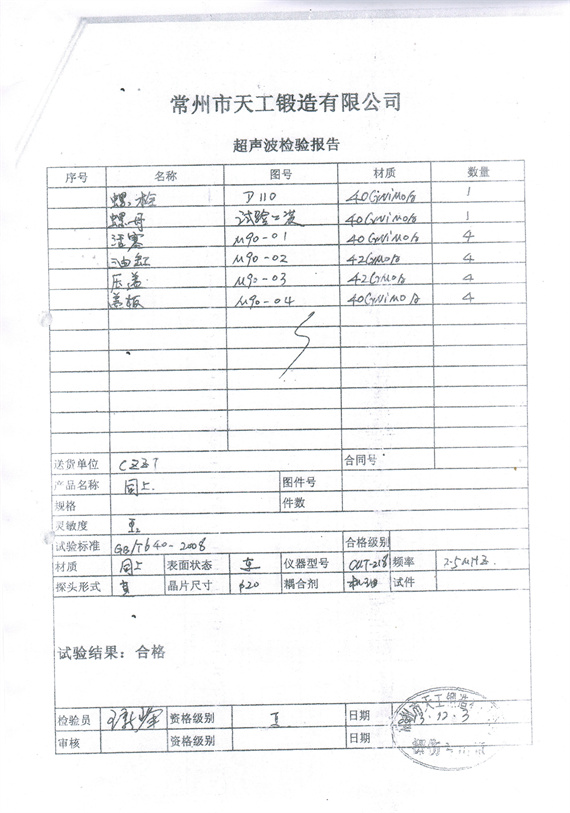 常州市天工锻造有限公司
超声波检验报告
序号 名称 图号 材质 数量
螺栓 D110 40CrNiMoA 1
螺母 试验工装 40CrNiMoA 1
活塞 M90-01 40CrNiMoA 4
油缸 M90-02 42CrMoA 4
压盖 M90-03 42CrMoA 4
盖板 M90-04 40CrNiMoA 4
送货单位 CZZT 合同号
产品名称 同上. 图件号
规格 件数
灵敏度
试验标准 合格级别
材质 同上 表面状态 仪器型号 频率 2.5MHZ.
探头形式 直 晶片尺寸 φ20 耦合剂 机油 试件
试验结果：合格
检验员 资格级别 II 日期 2013.12.3
审核 资格级别 日期
常州市天工锻造
探伤